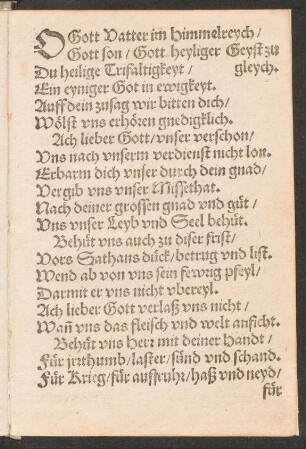 O Gott Vatter im Himmelreych/
Gott son/ Gott heyliger Geyst zu
Du heilige Trifaltigkeyt/ gleych.
Ein eyniger Got in ewigkeyt.
Auff dein zusag wir bitten dich/
Wölst vns erhören gnedigklich.
Ach lieber Gott/ vnser verschon/
Vns nach vnserm verdienst nicht lon.
Erbarm dich vnser durch dein gnad/
Vergib vns vnser Missethat.
Nach deiner grossen gnad vnd güt/
Vns vnser Leyb vnd Seel behüt.
Behüt vns auch zu diser frist/
Vors Sathans dück/ betrug vnd list.
Wend ab von vns sein fewrig pfeyl/
Darmit er vns nicht vbereyl.
Ach lieber Gott verlaß vns nicht/
Wañ vns das fleisch vnd welt anficht.
Behüt vns Herr mit deiner Handt/
Für jrrthumb/ laster/ sünd vnd schand.
Für Krieg/ für auffruhr/ haß vnd neyd/
für